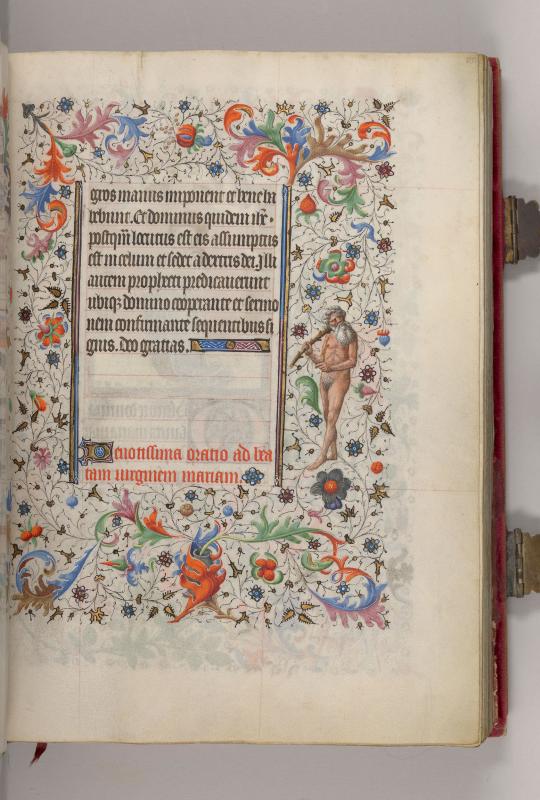 gros manus imponent et bene ha
bebunt. Et dominus quidem ihs
postqm locutus est eis assumptus
est in celum et sedet a dextris dei. Illi
autem profecti predicaverunt
ubiqz domino cooperante et sermo
nem confirmante sequentibus si
gnis. deo gratias.
Devotissima oratio ad bea
tam virginem mariam.